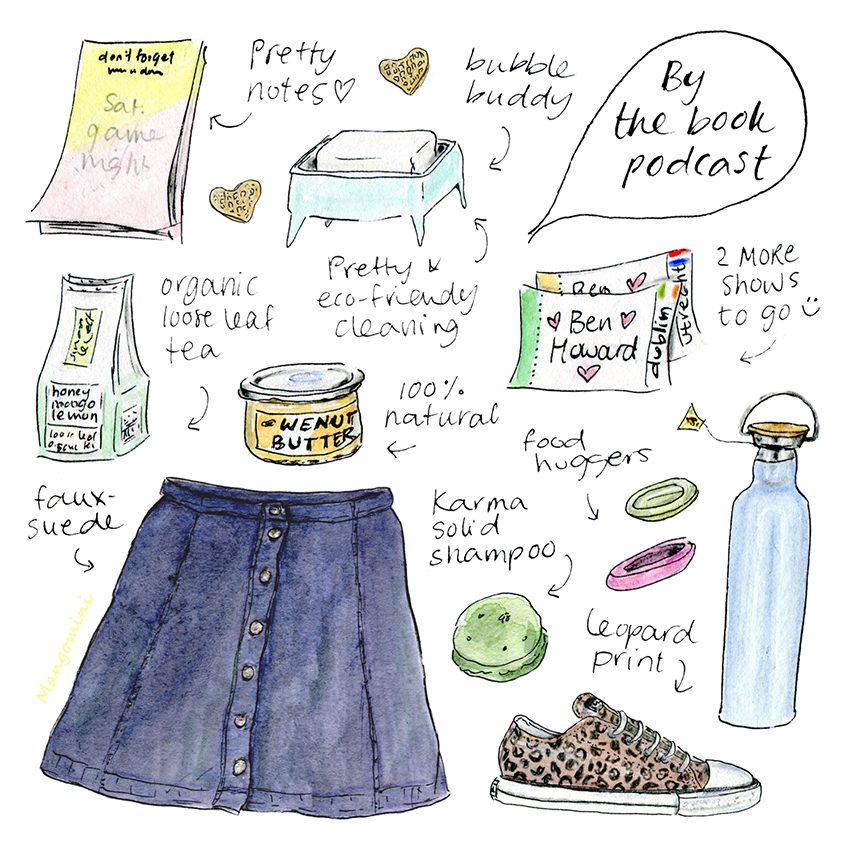 don't forget
Sat:
game
night
Pretty
notes♡
bubble
buddy
By
the book
podcast
organic
loose leaf
tea
Pretty &
eco-friendy
cleaning
Ben
Ben
Howard
dublin
utrecht
2 MORE
SHOWS
TO GO
honey
mango
lemon
WENUT
BUTTER
100%
natural
food
huggers
faux-
suede
Karma
solid
shampoo
Leopard
print
Mangomini